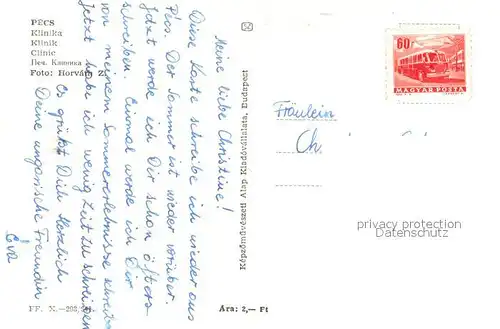 PÉCS
Klinika
Klinik
Clinic
Печ. Клиника
Foto: Horváth Z.
Meine liebe Christine!
Diese Karte schreibe ich wieder aus
Pécs. Der Sommer ist wieder vorüber.
Jetzt werde ich Dir schon öfters
schreiben. Einmal werde ich Dir
von meinem Sommererlebnisse schreiben
Jetzt habe ich wenig Zeit zu schreiben
Es grüsst Dich Herzlich
Deine ungarische Freundin
Éva
FF. N.—293,
Ára: 2,— Ft
Képzőművészeti Alap Kiadóvállalata, Budapest
60f
MAGYAR POSTA
Fräulein
Ch
privacy protection
Datenschutz